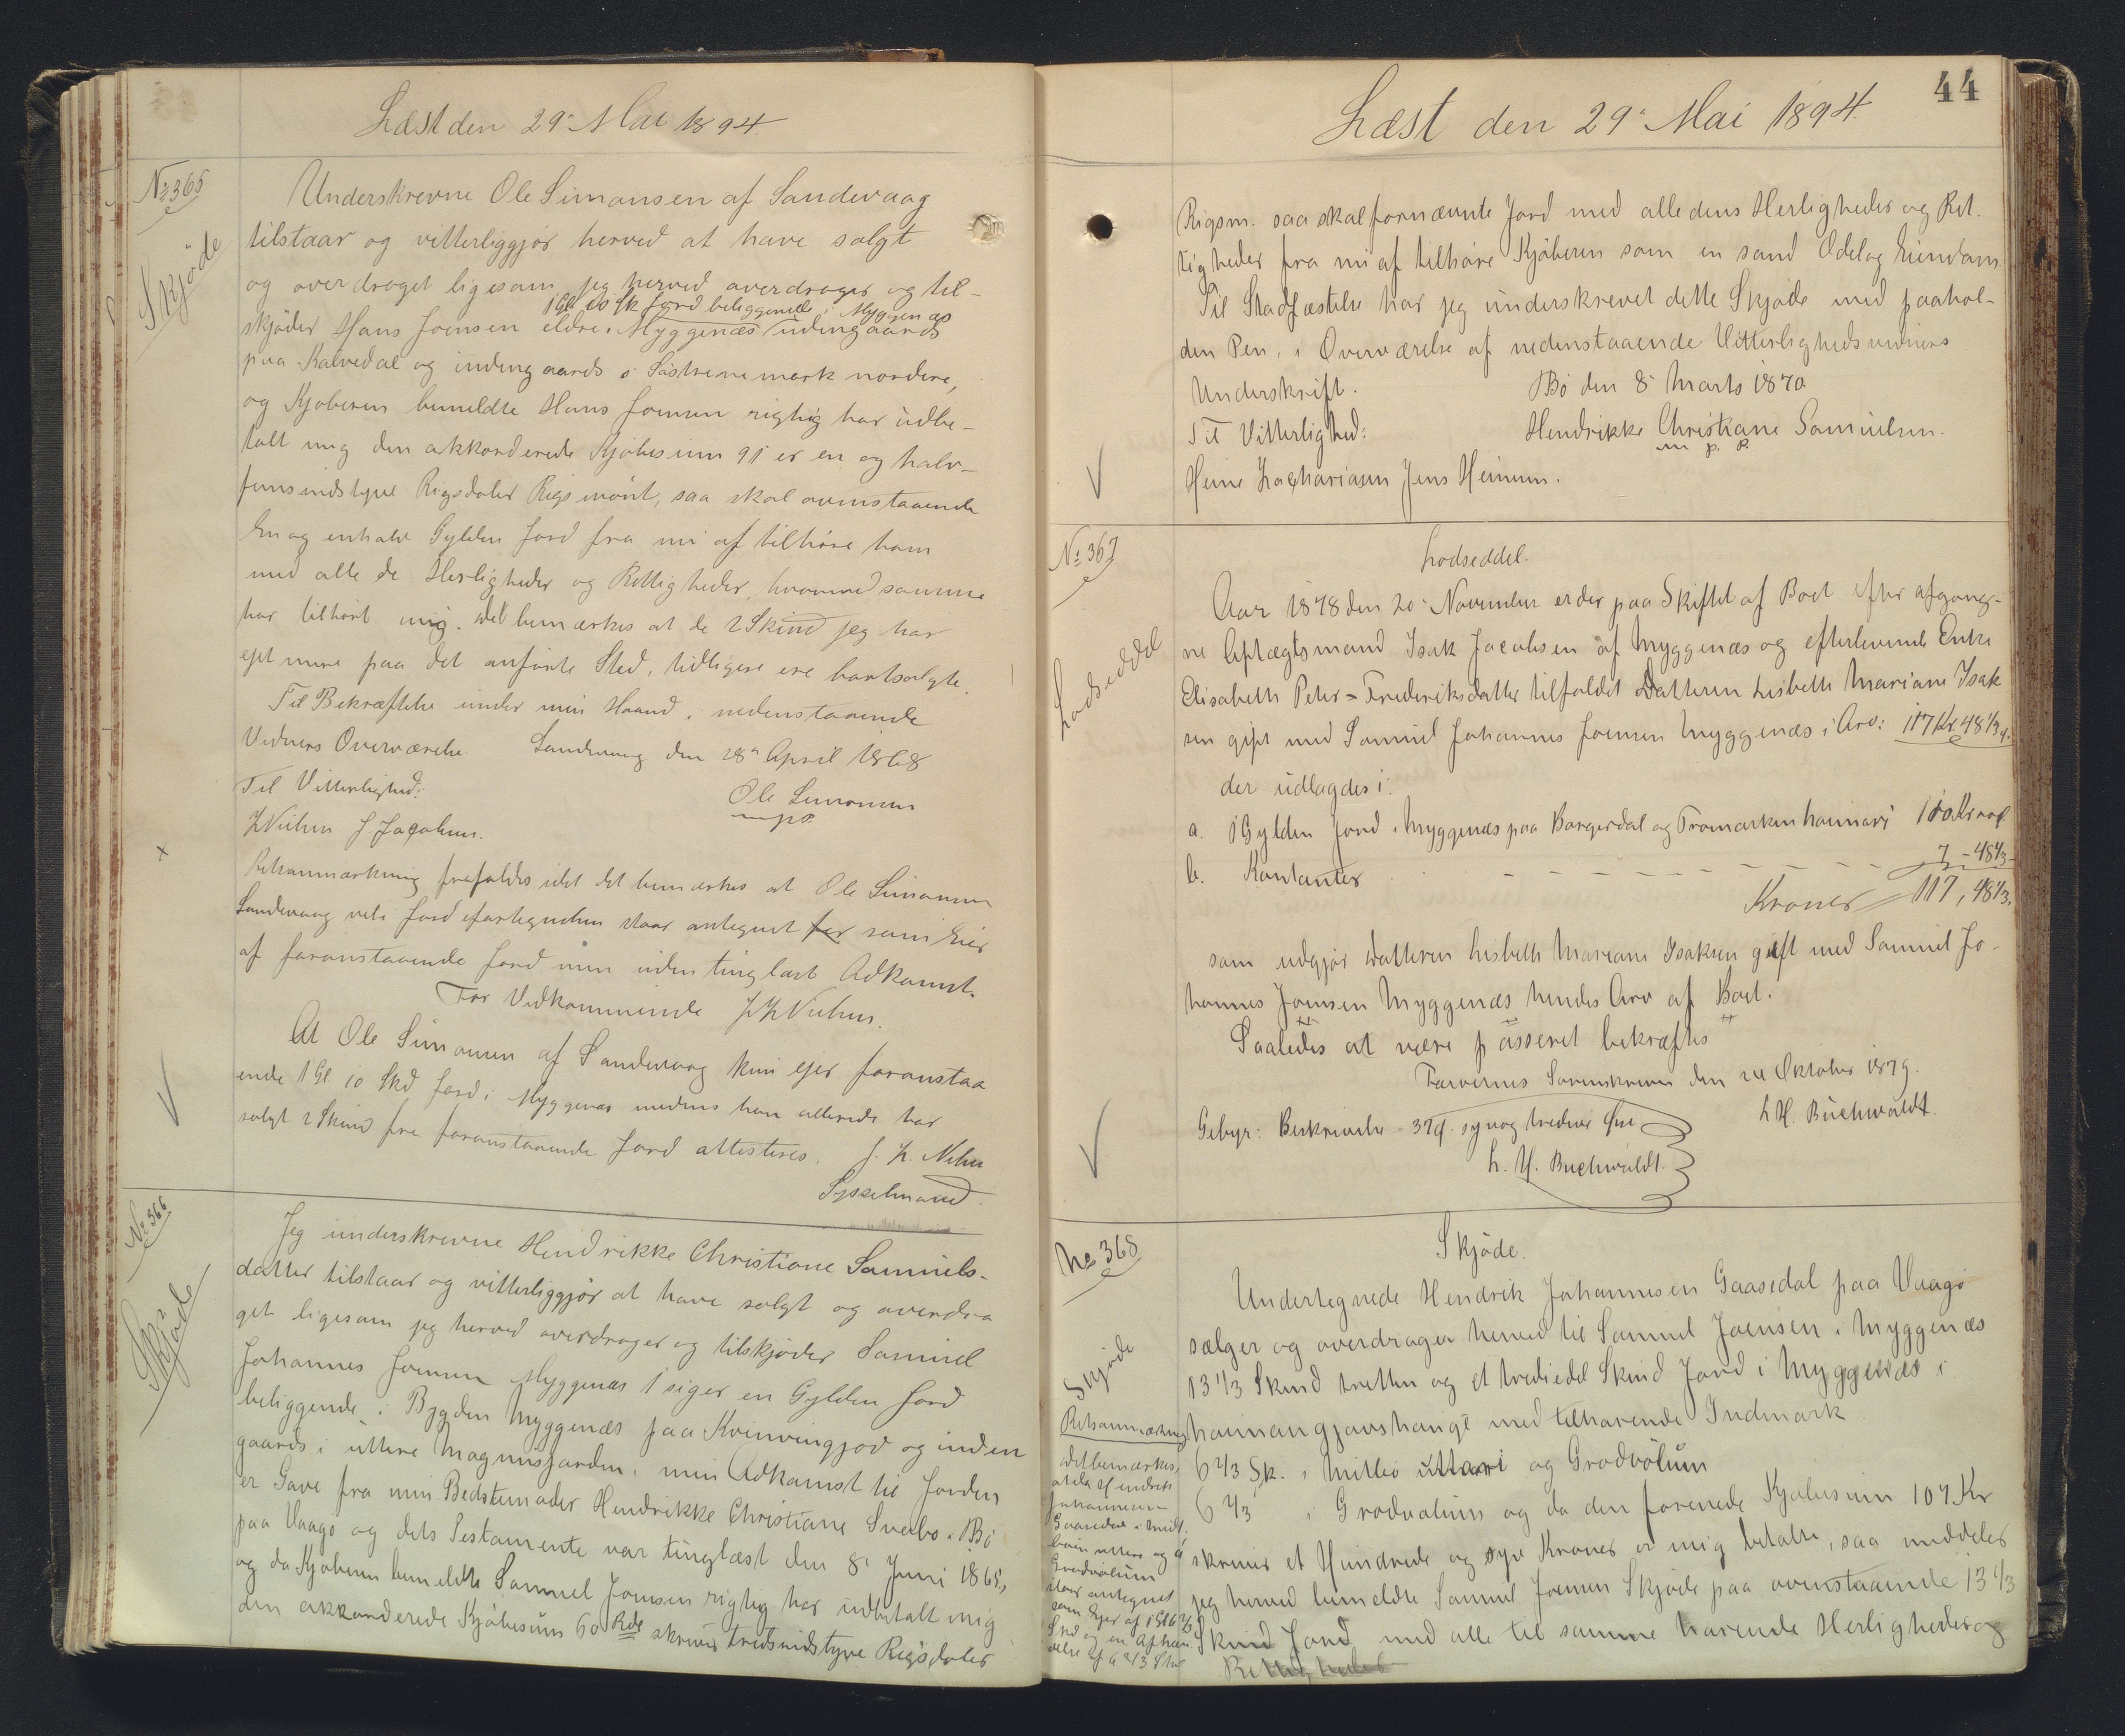 Læst den 29' Mai 1894.
No 365
Skjøde
Underskrevne Ole Simonsen af Sandevaag
tilstaar og vitterliggjør herved at have solgt
og overdraget ligesom jeg herved overdrager og til-
1 Gl. 10 Sk Jord beliggende i Myggenæs
skjøder Hans Joensen eldre i Myggenæs udengaards
paa Kalvedal og indengaards i Sastrenemark nordere,
og Kjøberen bemeldte Hans Joensen rigtig har udbe-
talt mig den akkorderede Kjøbesum 91 er en og halv-
femsindstyve Rigsdaler Rigsmønt, saa skal ovenstaaende
En og enhalv Gylden Jord fra nu af tilhøre ham
med alle de Herligheder og Rettigheder, hvormed samme
har tilhørt mig. Det bemærkes at de 2 Skind jeg har
ejet mere paa det anførte Sted, tidligere ere bortsolgte.
Til Bekræftelse under min Haand i nedenstaaende
Vidners Overværelse. Sandevaag den 28' April 1868
Til Vitterlighed: Ole Simonsen
m. p. s.
Z Nielsen J. Jacobsen.
Retsanmærkning frafaldes idet det bemærkes at Ole Simonsen
Sandevaag vel i Jordefortegnelsen staar antegnet for som Eier
af foranstaaende Jord men uden tinglæst Adkomst.
For Vedkommende J Z Nielsen.
At Ole Simonsen af Sandevaag kun ejer foranstaa
ende 1 Gl. 10 Skd Jord i Myggenæs medens han allerede har
solgt 2 Skind fra foranstaaende Jord attesteres. J. Z. Nielsen
Sysselmand.
No 366
Skjøde
Jeg underskrevne Hendrikke Christiane Samuels-
datter tilstaar og vitterliggjør at have solgt og overdra
get ligesom jeg herved overdrager og tilskjøder Samuel
Johannes Joensen Myggenæs 1 siger en Gylden Jord
beliggende i Bygden Myggenæs paa Kvinvingjov og inden
gaards i uttere Magnusjorden, min Adkomst til Jorden
er Gave fra min Bedstemoder Hendrikke Christiane Svabo i Bø
paa Vaagø og dets Testamente var tinglæst den 8' Juni 1865,
og da Kjøberen bemeldte Samuel Joensen rigtig har udbetalt mig
den akkorderede Kjøbesum 60 Rdl skriver tredsindstyve Rigsdaler
44
Læst den 29' Mai 1894.
Rigsm. saa skal fornævnte Jord med alle dens Herligheder og Ret-
tigheder fra nu af tilhøre Kjøberen som en sand Odel og Eiendom.
Til Stadfæstelse har jeg underskrevet dette Skjøde med paahol-
den Pen, i Overværelse af nedenstaaende Vitterlighedsvidners
Underskrift. Bø den 8' Marts 1870
Til Vitterlighed: Hendrikke Christiane Samuelsen.
m. p. P
Heine Zachariasen Jens Heinesen.
No 367
Lodseddel
Lodseddel.
Aar 1878 den 20' November er der paa Skiftet af Boet efter afgang-
ne Aptægtsmand Isak Jacobsen af Myggenæs og efterlevende Enke
Elisabeth Peter-Frederiksdatter tilfaldet Datteren Lisbeth Mariane Isak
sen gift med Samuel Johannes Joensen Myggenæs i Arv: 117 Kr 48 1/3 ø.
der udlagdes i:
a. 1 Gylden Jord i Myggenæs paa Borgerdal og Tromarken haimari 110 Kr 00 ø.
b. Kontanter 7 - 48 1/3 -
Kroner 117, 48 1/3.
som udgjør Datteren Lisbeth Mariane Isaksen gift med Samuel Jo-
hannes Joensen Myggenæs hendes Arv af Boet.
Saaledes at være passeret bekræftes
Færøernes Sorenskriveri den 22 Oktober 1879.
L H. Buchwaldt.
Gebyr: Beskrivelse - 37 ø. syv og tredive Øre
L. H. Buchwaldt.
No 368
Skjøde
Skjøde.
Undertegnede Hendrik Johannesen Gaasedal paa Vaagø
sælger og overdrager herved til Samuel Joensen i Myggenæs
13 1/3 Skind tretten og et trediedel Skind Jord i Myggenæs i
haimangjavshange med tilhørende Indmark
6 2/3 Sk. i Mitlbø uttari og Grødvølum
6 2/3 " i Grødvølum og da den forenede Kjøbesum 107 Kr
skriver et Hundrede og syv Kroner er mig betalte, saa meddeler
jeg herved bemeldte Samuel Joensen Skjøde paa ovenstaaende 13 1/3
Skind Jord med alle til samme hørende Herligheder og
Rettigheder
Retsanmærkning
Det bemærkes,
at da Hendrik
Johannesen
Gaasedal i Midt-
bøin uttere og i
Grødvølum
staar antegnet
som Ejer af 1 Gl 6 2/3
Skd og en Afhæn-
delse af 6 2/3 Skd